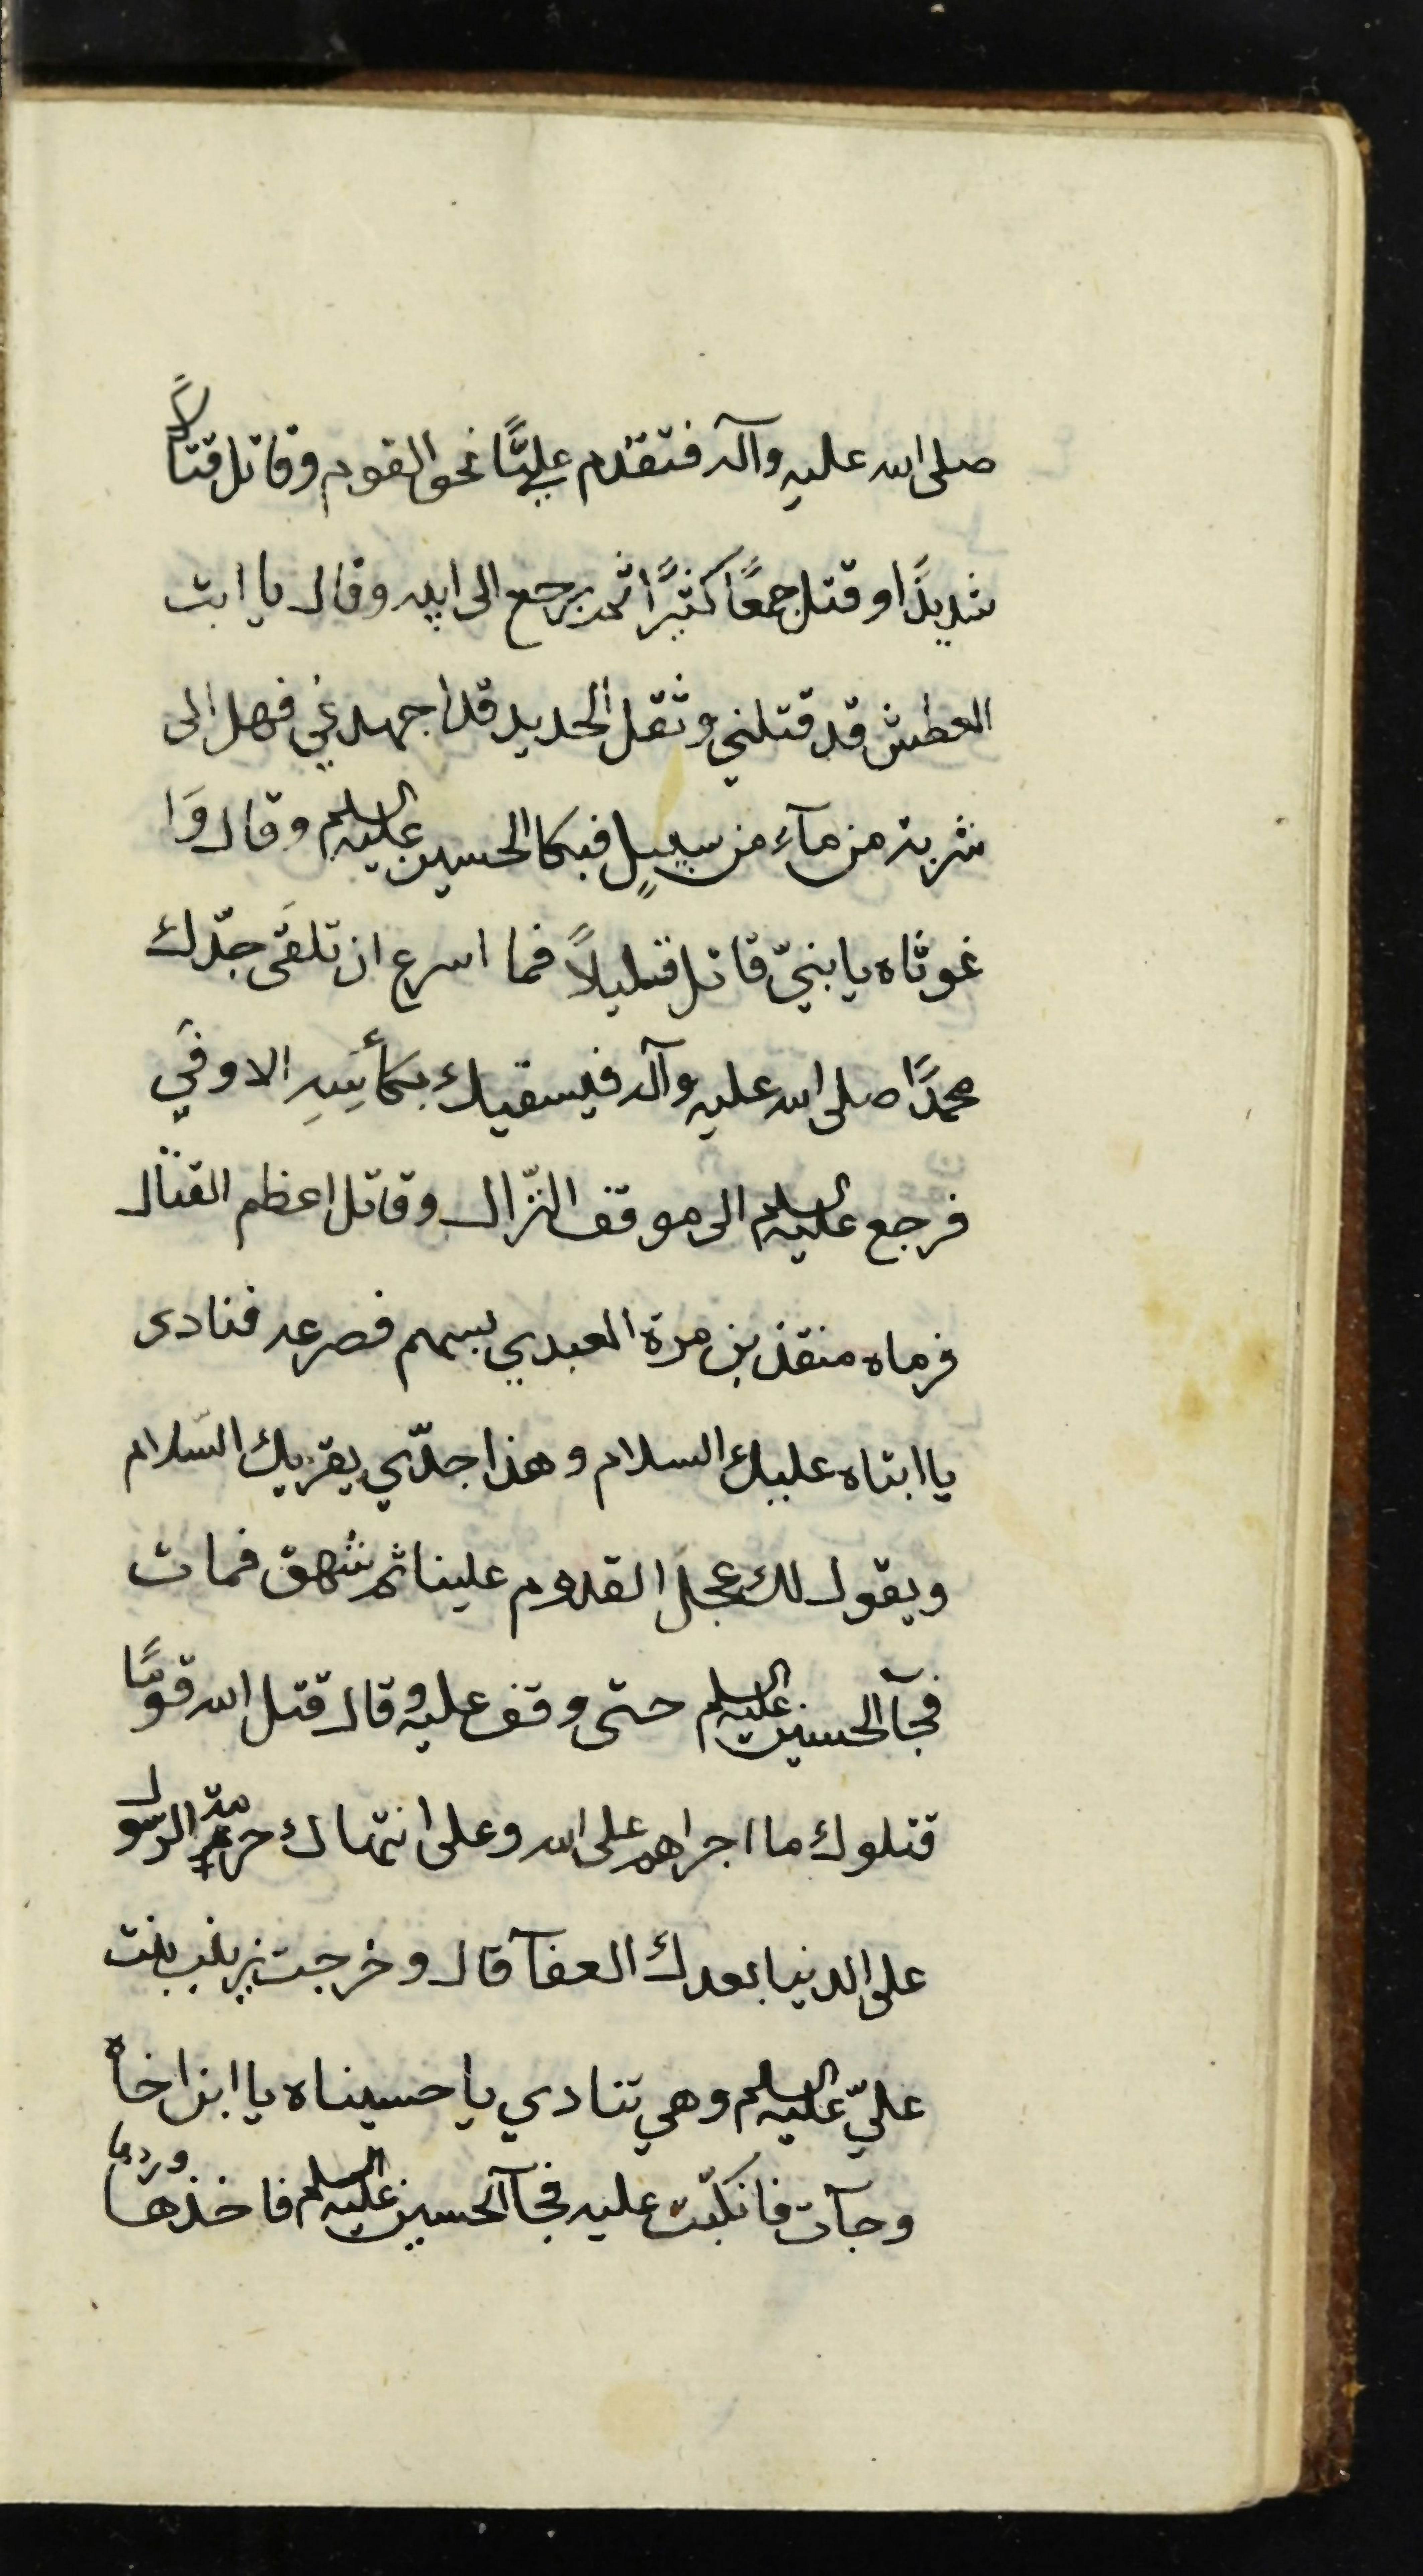 صلى الله عليه وآله فتقدم عليًّا نحو القوم وقاتل قتالاً
شديدًا وقتل جمعًا كثيرًا ثم رجع الى ابيه وقال يا ابت
العطش قد قتلني وثقل الحديد قد اجهدني فهل الى
شربة من مآءٍ من سبيلٍ فبكا الحسين عليه السلم وقال وَا
غوثاه يا بنيّ قاتل قليلاً فما اسرع ان تلقَى جدّك
محمدًا صلى الله عليه وآله فيسقيك بكأسِهِ الاوفَي
فرجع عليه السلم الى موقف النّزال وقاتل اعظم القتال
فرماه منقذ بن مرة العبدي بسهم فصرعه فنادى
يا ابتاه عليك السلام وهذا جدّي يقريك السّلام
ويقول لك عجل القدوم علينا ثم شهق فمات
فجآ الحسين عليه السلم حتى وقف عليه وقال قتل الله قومًا
قتلوك ما اجراهم على الله وعلى انتهاك حرمة الرسول
على الدنيا بعدك العفآ قال وخرجت زينب بنت
عليّ عليه السلم وهي تنادي يا حسيناه يا ابن اخاه
وجآت فانكبّت عليه فجآ الحسين عليه السلم فاخذها وردها